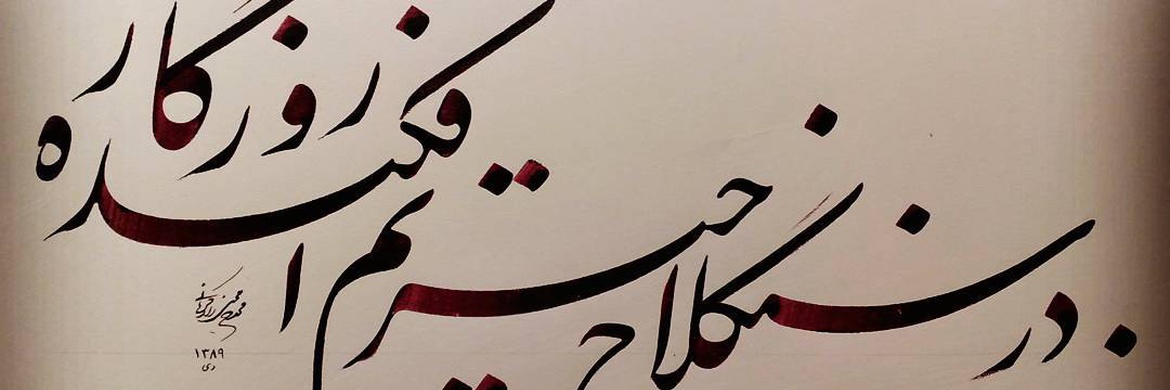 در سنگلاخ حیرتم افکنده روزگار
۱۳۸۹
دی